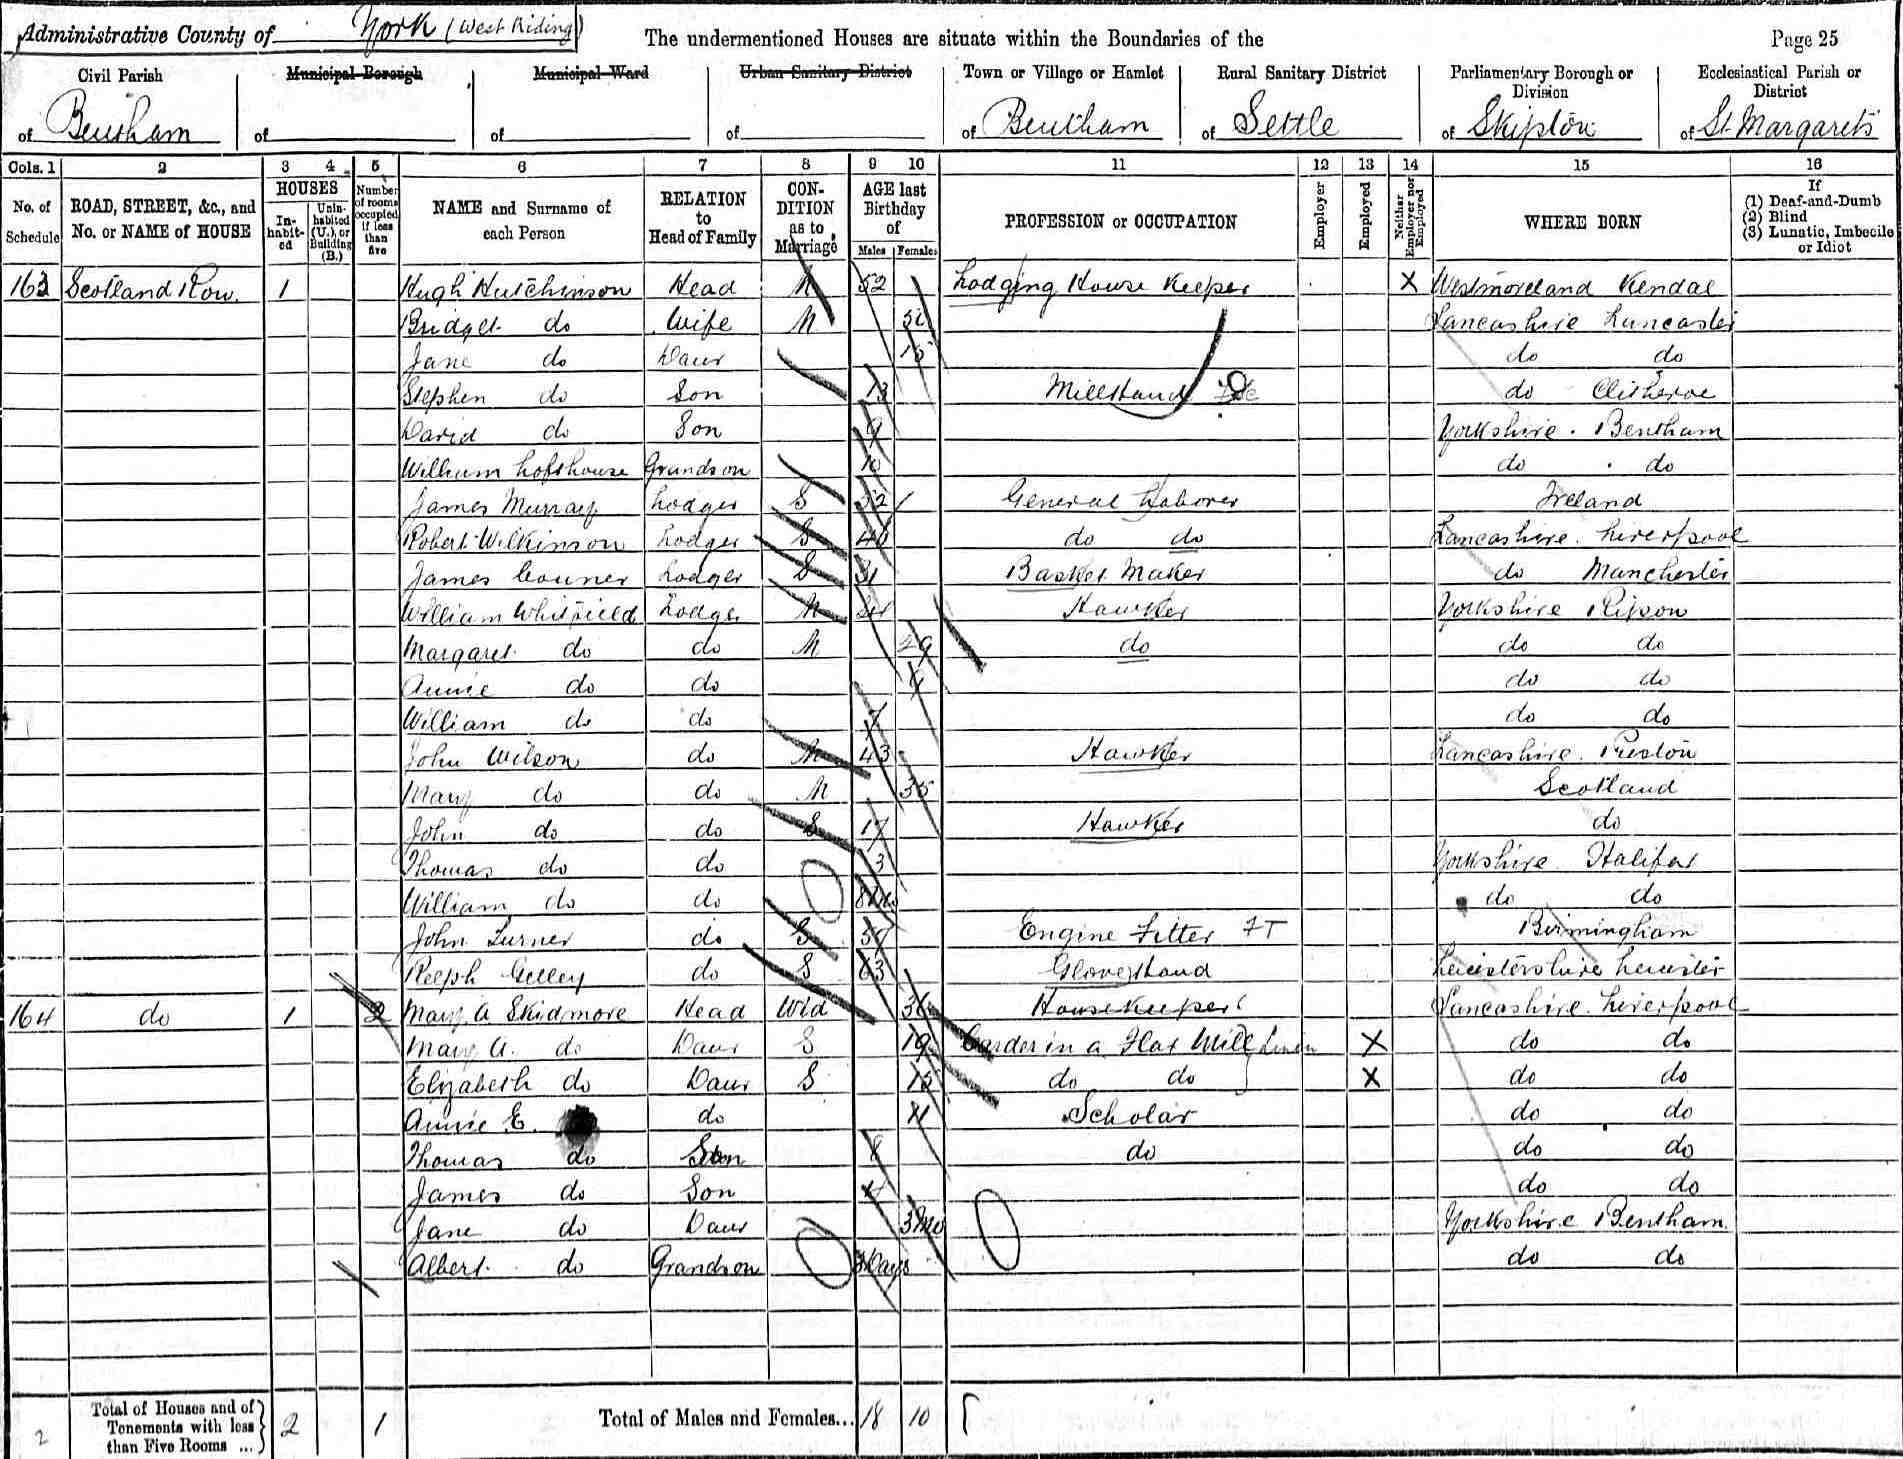 Administrative County of York (West Riding)
The undermentioned Houses are situate within the Boundaries of the
Page 25
Civil Parish of Bentham
Municipal Borough of
Municipal Ward of
Urban Sanitary District of
Town or Village or Hamlet of Bentham
Rural Sanitary District of Settle
Parliamentary Borough or Division of Skipton
Ecclesiastical Parish or District of St. Margaret's
Cols. 1 2 3 4 5 6 7 8 9 10 11 12 13 14 15 16
No. of Schedule
ROAD, STREET, &c., and No. or NAME of HOUSE
HOUSES
In-habit-ed
Unin-habited (U.), or Building (B.)
Number of rooms occupied if less than five
NAME and Surname of each Person
RELATION to Head of Family
CON-DITION as to Marriage
AGE last Birthday of
Males Females
PROFESSION or OCCUPATION
Employer
Employed
Neither Employer nor Employed
WHERE BORN
If
(1) Deaf-and-Dumb
(2) Blind
(3) Lunatic, Imbecile or Idiot
163 Scotland Row. 1 Hugh Hutchinson Head M 52 Lodging House Keeper X Westmoreland Kendal
Bridget do Wife M Lancashire Lancaster
Jane do Daur 15 do do
Stephen do Son 13 Mill Hand do Clitheroe
David do Son 9 Yorkshire. Bentham
William Lofthouse Grandson 10 do do
James Murray Lodger S General Laborer Ireland
Robert Wilkinson Lodger S 46 do do Lancashire. Liverpool
James Conner Lodger S 31 Basket Maker do Manchester
William Whitfield Lodger M Hawker Yorkshire Ripon
Margaret do do M 49 do do do
Annie do do 9 do do
William do do 7 do do
John Wilson do M 43 Hawker Lancashire. Preston
Mary do do M 35 Scotland
John do do S 17 Hawker do
Thomas do do 3 Yorkshire. Halifax
William do do 8 Mo do do
John Turner do S Engine Fitter FT Birmingham
Relph Gelley do S 63 Glove Hand Leicestershire Leicester
164 do 1 2 Mary A Skidmore Head Wid 36 Housekeeper Lancashire. Liverpool
Mary A. do Daur S 19 Carder in a Flax Mill Linen X do do
Elizabeth do Daur S 15 do do X do do
Annie E. do 11 Scholar do do
Thomas do Son 8 do do do
James do Son 4 do do
Jane do Daur 3 Mo Yorkshire Bentham.
Albert do Grandson 3 Days do do
2 Total of Houses and of Tenements with less than Five Rooms ... 2 1 Total of Males and Females... 18 10